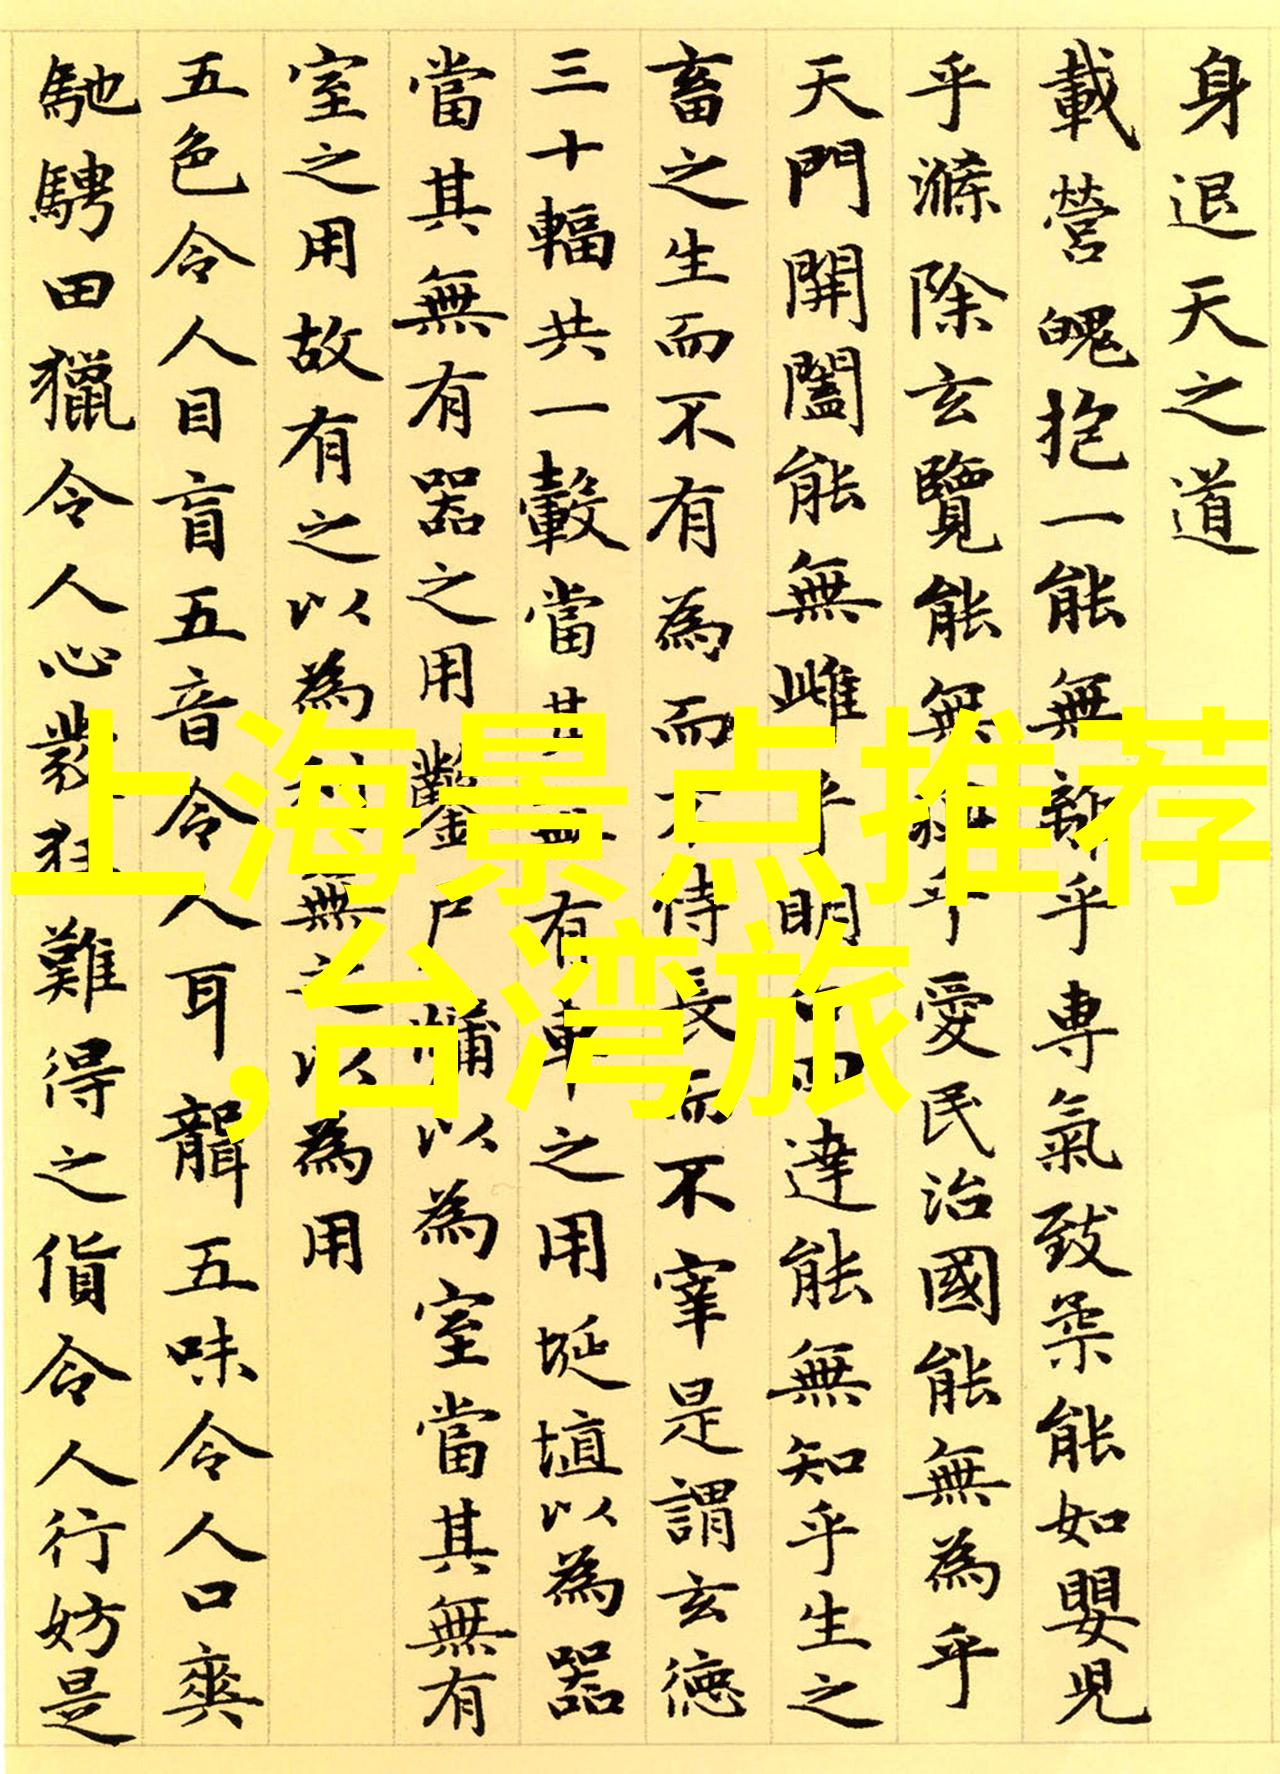 身退天之道
載營魄抱一能無離乎專氣致柔能如嬰兒
乎滌除玄覽能無疵乎愛民治國能無為乎
天門開闔能無雌乎明白四達能無知乎生之
畜之生而不有為而不恃長而不宰是謂玄德
三十輻共一轂當其無有車之用埏埴以為器
當其無有器之用鑿戶牖以為室當其無有
室之用故有之以為利無之以為用
五色令人目盲五音令人耳聾五味令人口爽
馳騁田獵令人心發狂難得之貨令人行妨是
上海景点推荐
,台湾旅